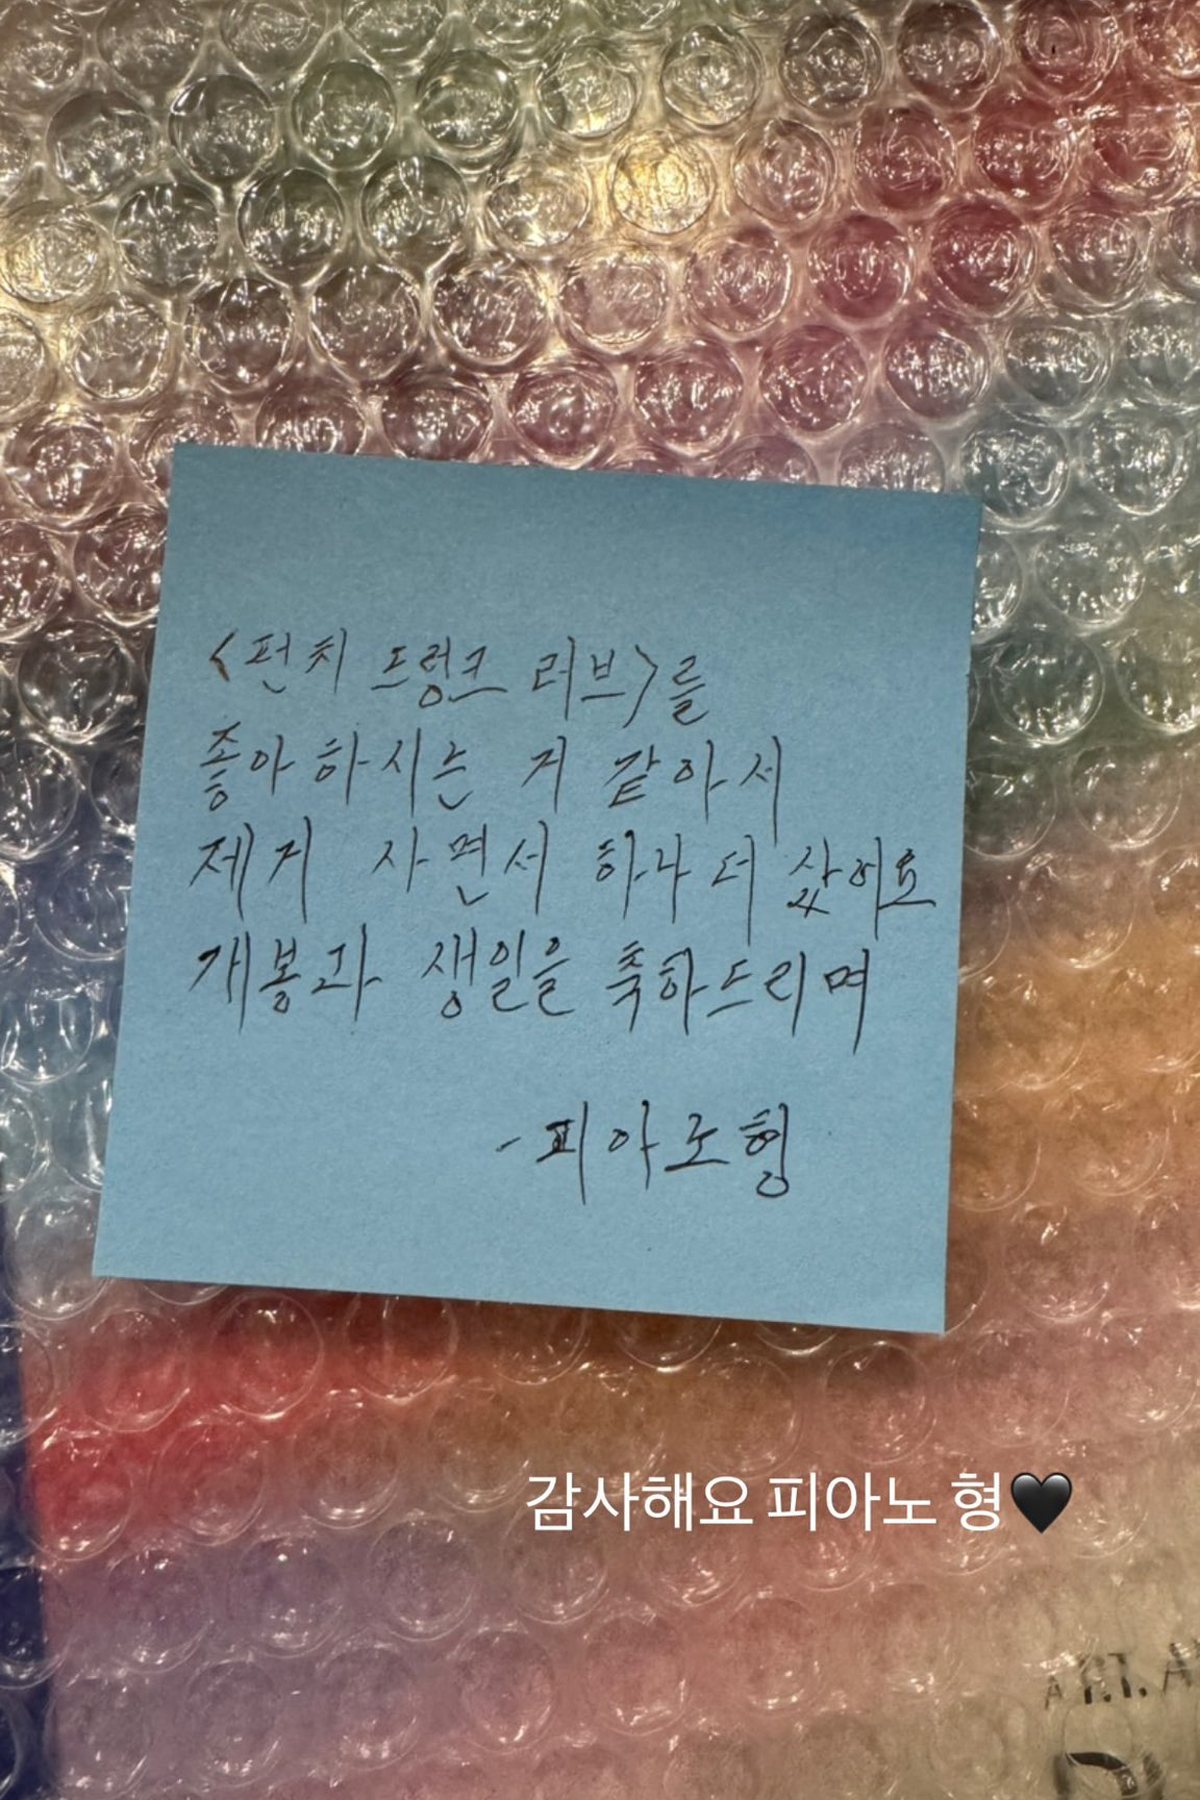 <펀치 드렁크 러브>를
좋아하시는 거 같아서
제거 사면서 하나 더 샀어요
개봉과 생일을 축하드리며
-피아노형
감사해요 피아노 형🖤
A P.T. A